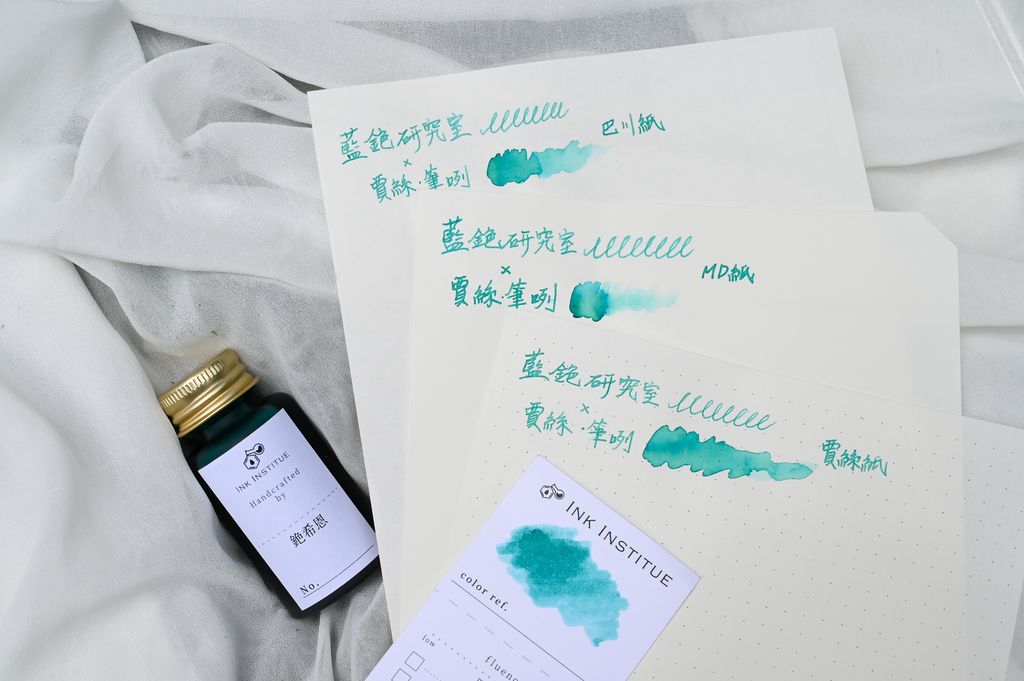 藍銫研究室
巴川紙
×
賈絲·筆咧
藍銫研究室
MD紙
×
賈絲·筆咧
藍銫研究室
×
賈絲·筆咧
賈絲紙
INK INSTITUE
Handcrafted
by
銫希恩
No.
INK INSTITUE
color ref.
low